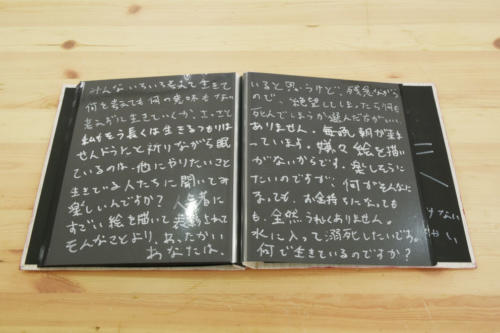 みんないろいろ考えて生きて
何を考えても何の意味もなの
考えずに生きていくか、さっさと
私がそう長くは生きるつもりは
せんどうだと祈りながら眠
ているのは、他にやりたいこと
生きている人たちに聞いてみ
楽しいんですか？
すごい絵を描いて
そんなことより、あったかい
あなたは、
いると思うけど、残念ながら
ので、絶望してしまったら何も
死んでしまうか選んだ方がいい
ありません。毎晩、朝が来ま
っています。嫌々絵を描い
がないからです。楽しそうに
たいのですが、何がそんなに
なっても、お金持ちになっても
も、全然うれしくありません。
水に入って溺死したいです。
何で生きているのですか？
けない